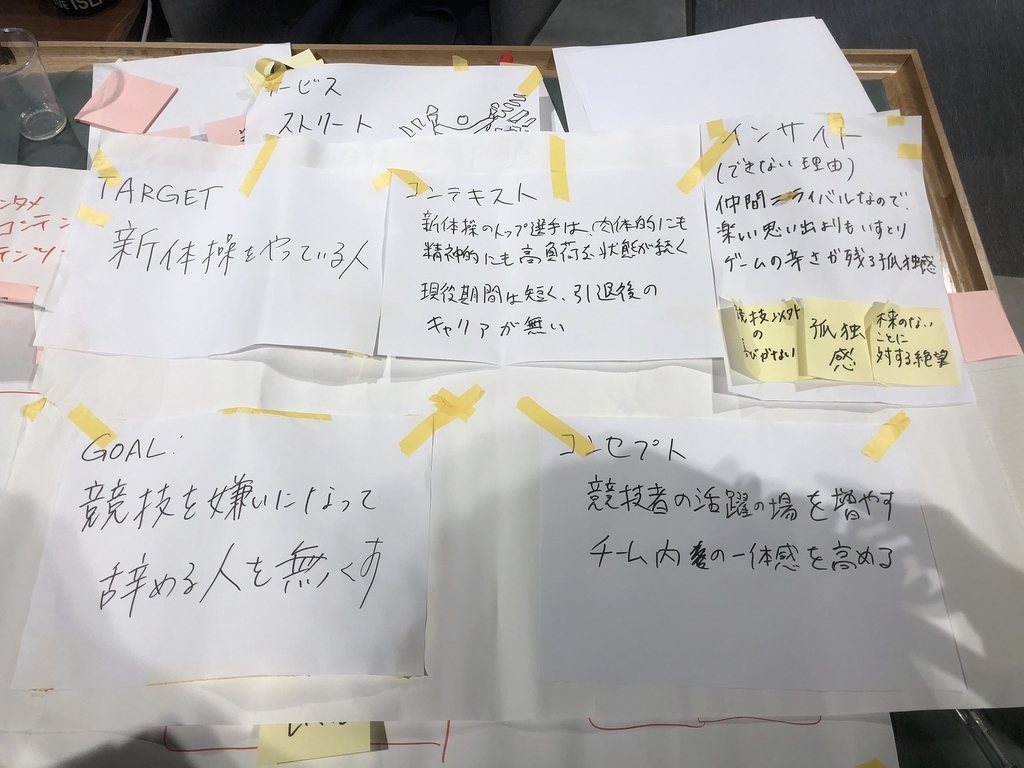 ービス
ストリート
TARGET
新体操をやっている人
コンテキスト
新体操のトップ選手は、肉体的にも
精神的にも高負荷な状態が続く
現役期間は短く、引退後の
キャリアが無い
インサイト
(できない理由)
仲間=ライバルなので、
楽しい思い出よりもいすとり
ゲームの辛さが残る孤独感
競技以外
の
喜びがない
孤独
感
未来のない
ことに
対する絶望
GOAL:
競技を嫌いになって
辞める人を無くす
コンセプト
競技者の活躍の場を増やす
チーム内の一体感を高める
ンタメ
コンテン
テンツ